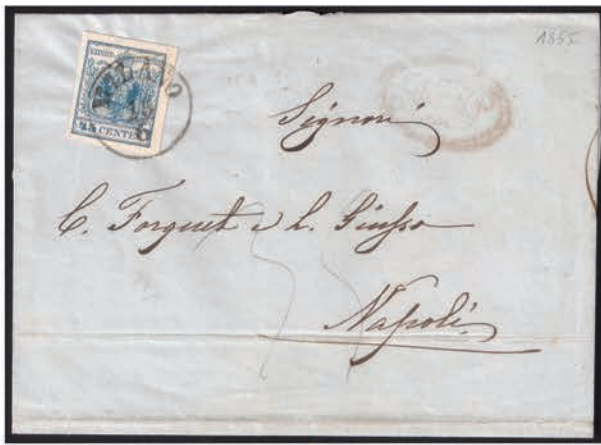 1855
MILANO
45 CENTES
Signori
C. Forquet e L. Giusso
Napoli